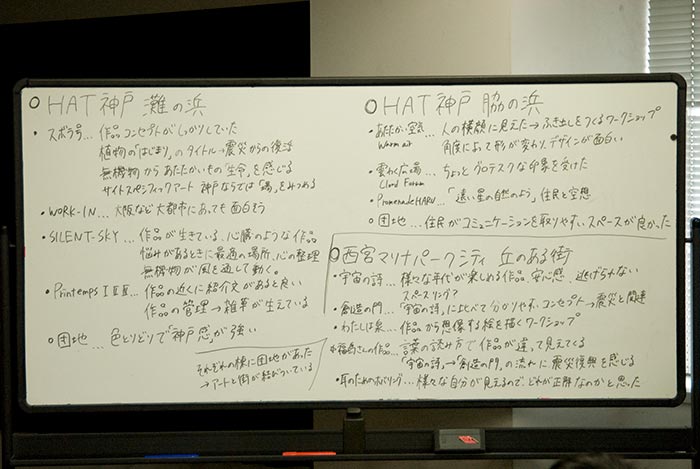 ○ HAT神戸 灘の浜
・スポラ号… 作品コンセプトがしっかりしていた
植物の「はじまり」のタイトル→震災からの復活
無機物からあたたかいもの「生命」を感じる
サイトスペシフィックアート 神戸ならでは「場」をみつめる
・WORK-IN… 大阪など大都市にあっても面白そう
・SILENT-SKY… 作品が生きている、心臓のような作品
悩みがあるときに最適の場所、心の整理
無機物が風を通して動く。
・Printemps I II III… 作品の近くに紹介文があると良い
作品の管理→雑草が生えている
○ 団地… 色とりどりで「神戸感」が強い
それぞれの棟に団地があった
→アートと街が結びついている
○ HAT神戸 脇の浜
・あたたかい空気… 人の横顔に見えた→ふき出しをつくるワークショップ
Warm air
角度によって形が変わり、デザインが面白い
・雲わく広場… ちょっとグロテスクな印象を受けた
Cloud Forum
・Promenade HARU… 「遠い星の自然のよう」住民と空想
○ 団地… 住民がコミュニケーションを取りやすいスペースが良かった
○ 西宮マリナパークシティ 丘のある街
・宇宙の詩… 様々な年代が楽しめる作品、安心感、逃げられない
スペースリング?
・創造の門… 「宇宙の詩」に比べて分かりやすいコンセプト→震災と関連
・わたしは糸… 作品から想像する絵を描くワークショップ
※福島さんの作品… 言葉の読み方で作品が違って見えてくる
「宇宙の詩」→「創造の門」の流れに震災復興を感じる
・耳のためのホバリング… 様々な自分が見えるので、どれが正解なのかと思った